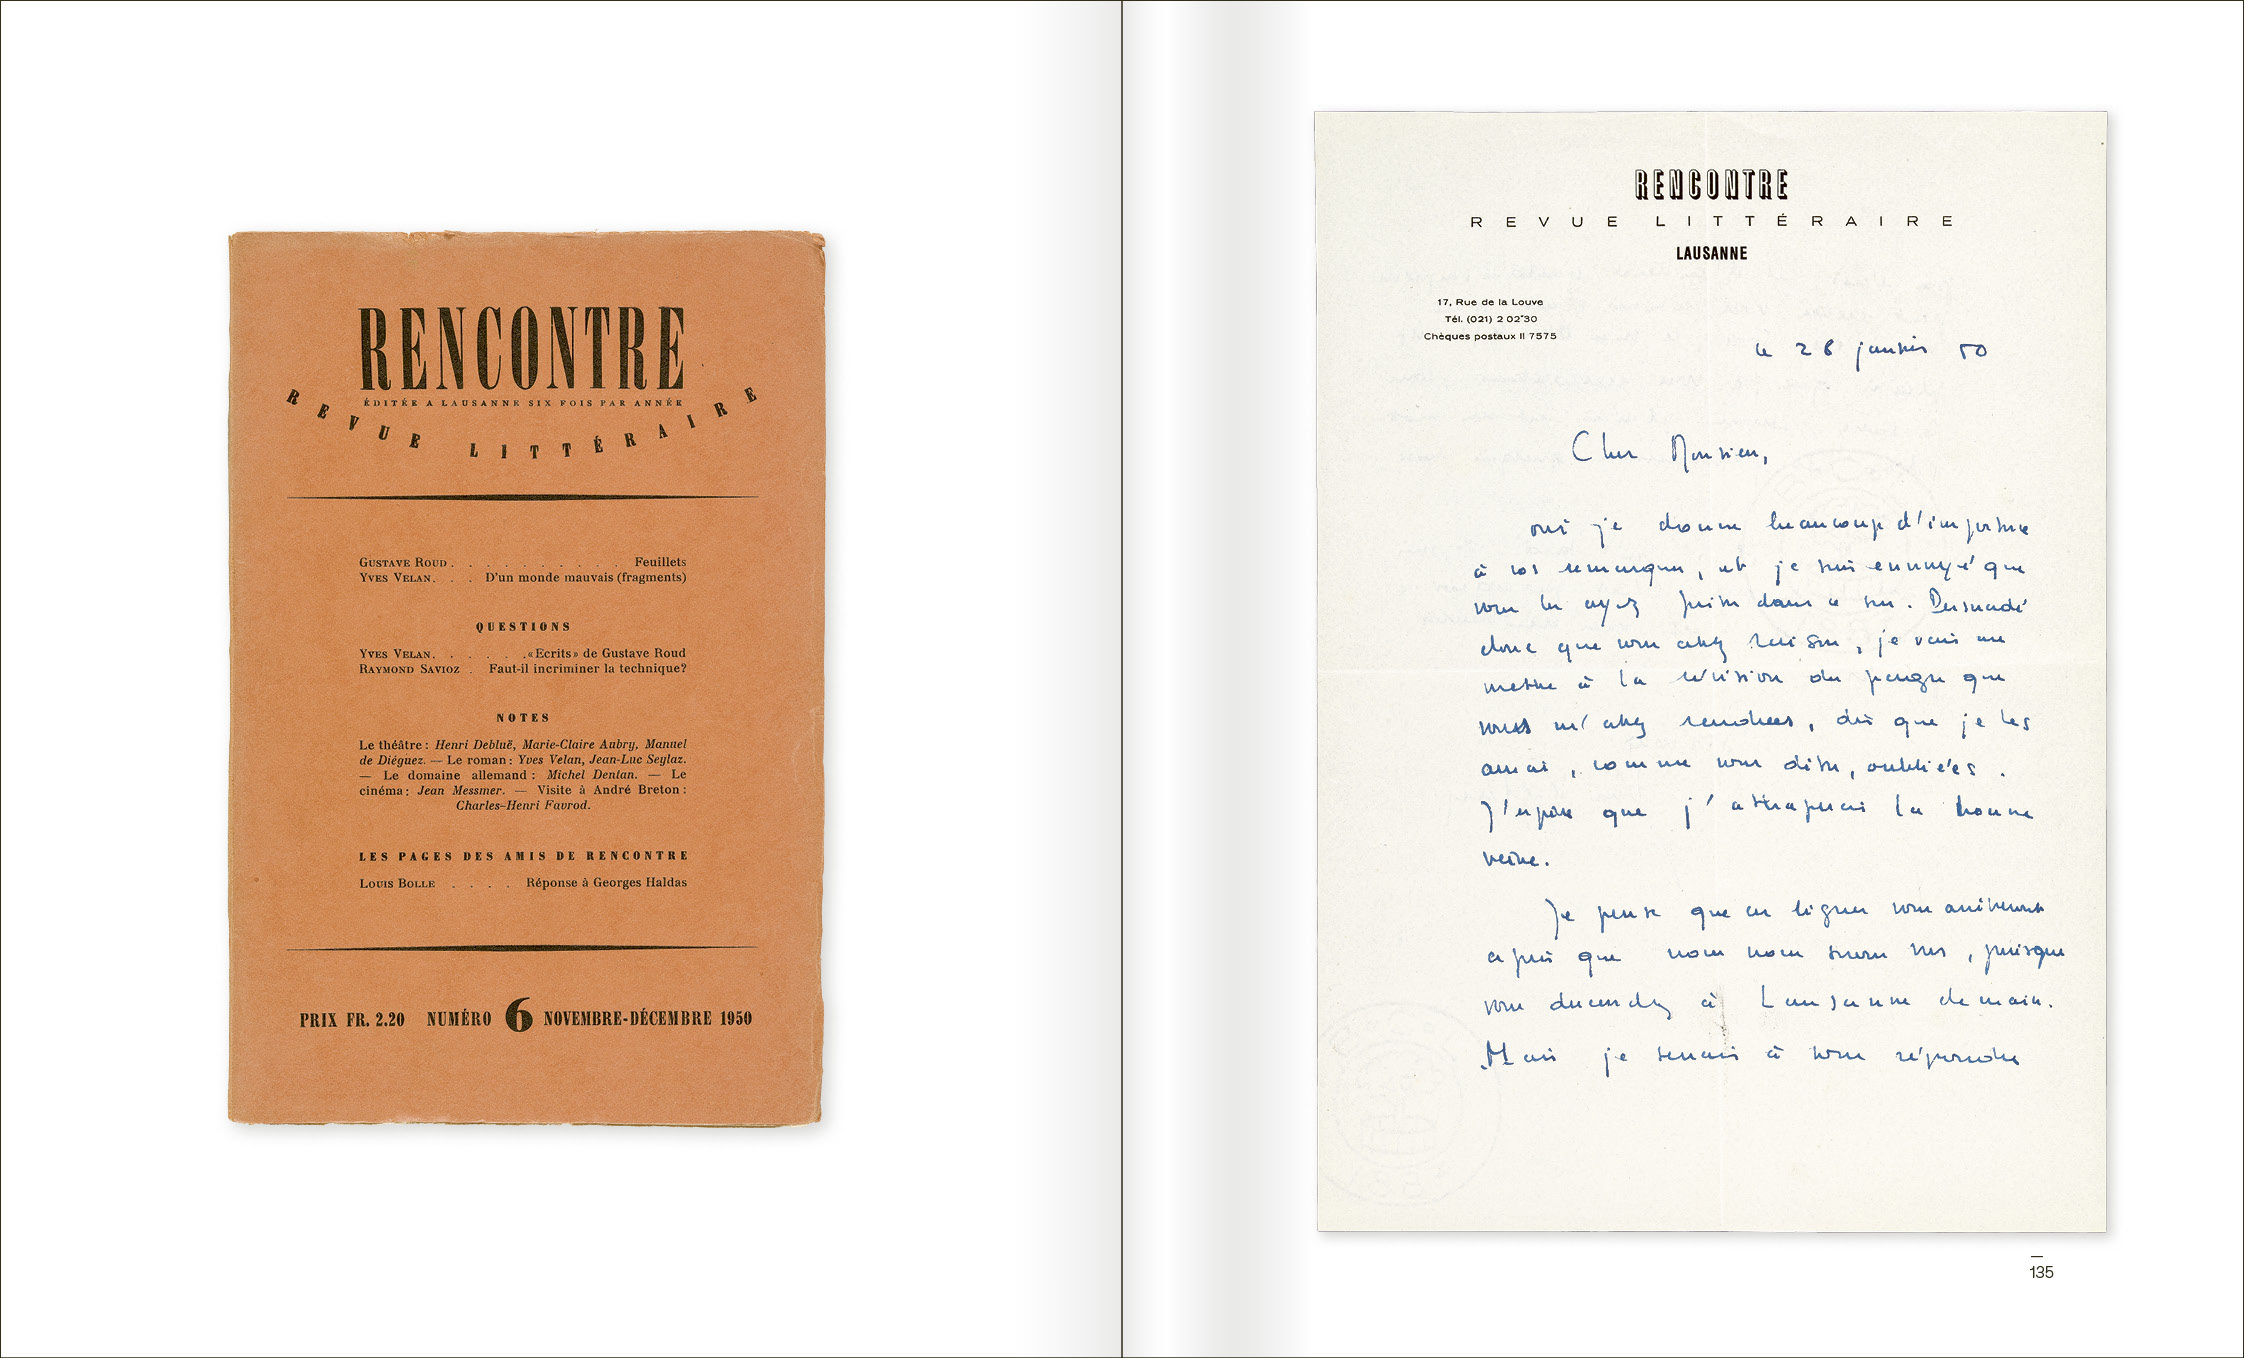 RENCONTRE
ÉDITÉE A LAUSANNE SIX FOIS PAR ANNÉE
REVUE LITTÉRAIRE
GUSTAVE ROUD . . . . . . . . . Feuillets
YVES VELAN. . . D'un monde mauvais (fragments)
QUESTIONS
YVES VELAN. . . . . .«Ecrits» de Gustave Roud
RAYMOND SAVIOZ . Faut-il incriminer la technique?
NOTES
Le théâtre : Henri Debluë, Marie-Claire Aubry, Manuel
de Diéguez. — Le roman : Yves Velan, Jean-Luc Seylaz.
— Le domaine allemand : Michel Dentan. — Le
cinéma : Jean Messmer. — Visite à André Breton :
Charles-Henri Favrod.
LES PAGES DES AMIS DE RENCONTRE
LOUIS BOLLE . . . . Réponse à Georges Haldas
PRIX FR. 2.20 NUMÉRO 6 NOVEMBRE-DÉCEMBRE 1950
RENCONTRE
REVUE LITTÉRAIRE
LAUSANNE
17, Rue de la Louve
Tél. (021) 2 02 30
Chèques postaux II 7575
le 28 janvier 50
Cher Monsieur,
oui je donne beaucoup d'importance
à vos remarques, et je suis ennuyé que
vous les ayez prises dans ce sens. Persuadé
donc que vous avez raison, je vais me
mettre à la révision des pages que
vous m'avez rendues, dès que je les
aurai, comme vous dites, oubliées.
J'espère que j'attraperai la bonne
veine.
Je pense que ces lignes vous arriveront
après que nous nous serons vus, puisque
vous descendez à Lausanne demain.
Mais je tenais à vous répondre
135